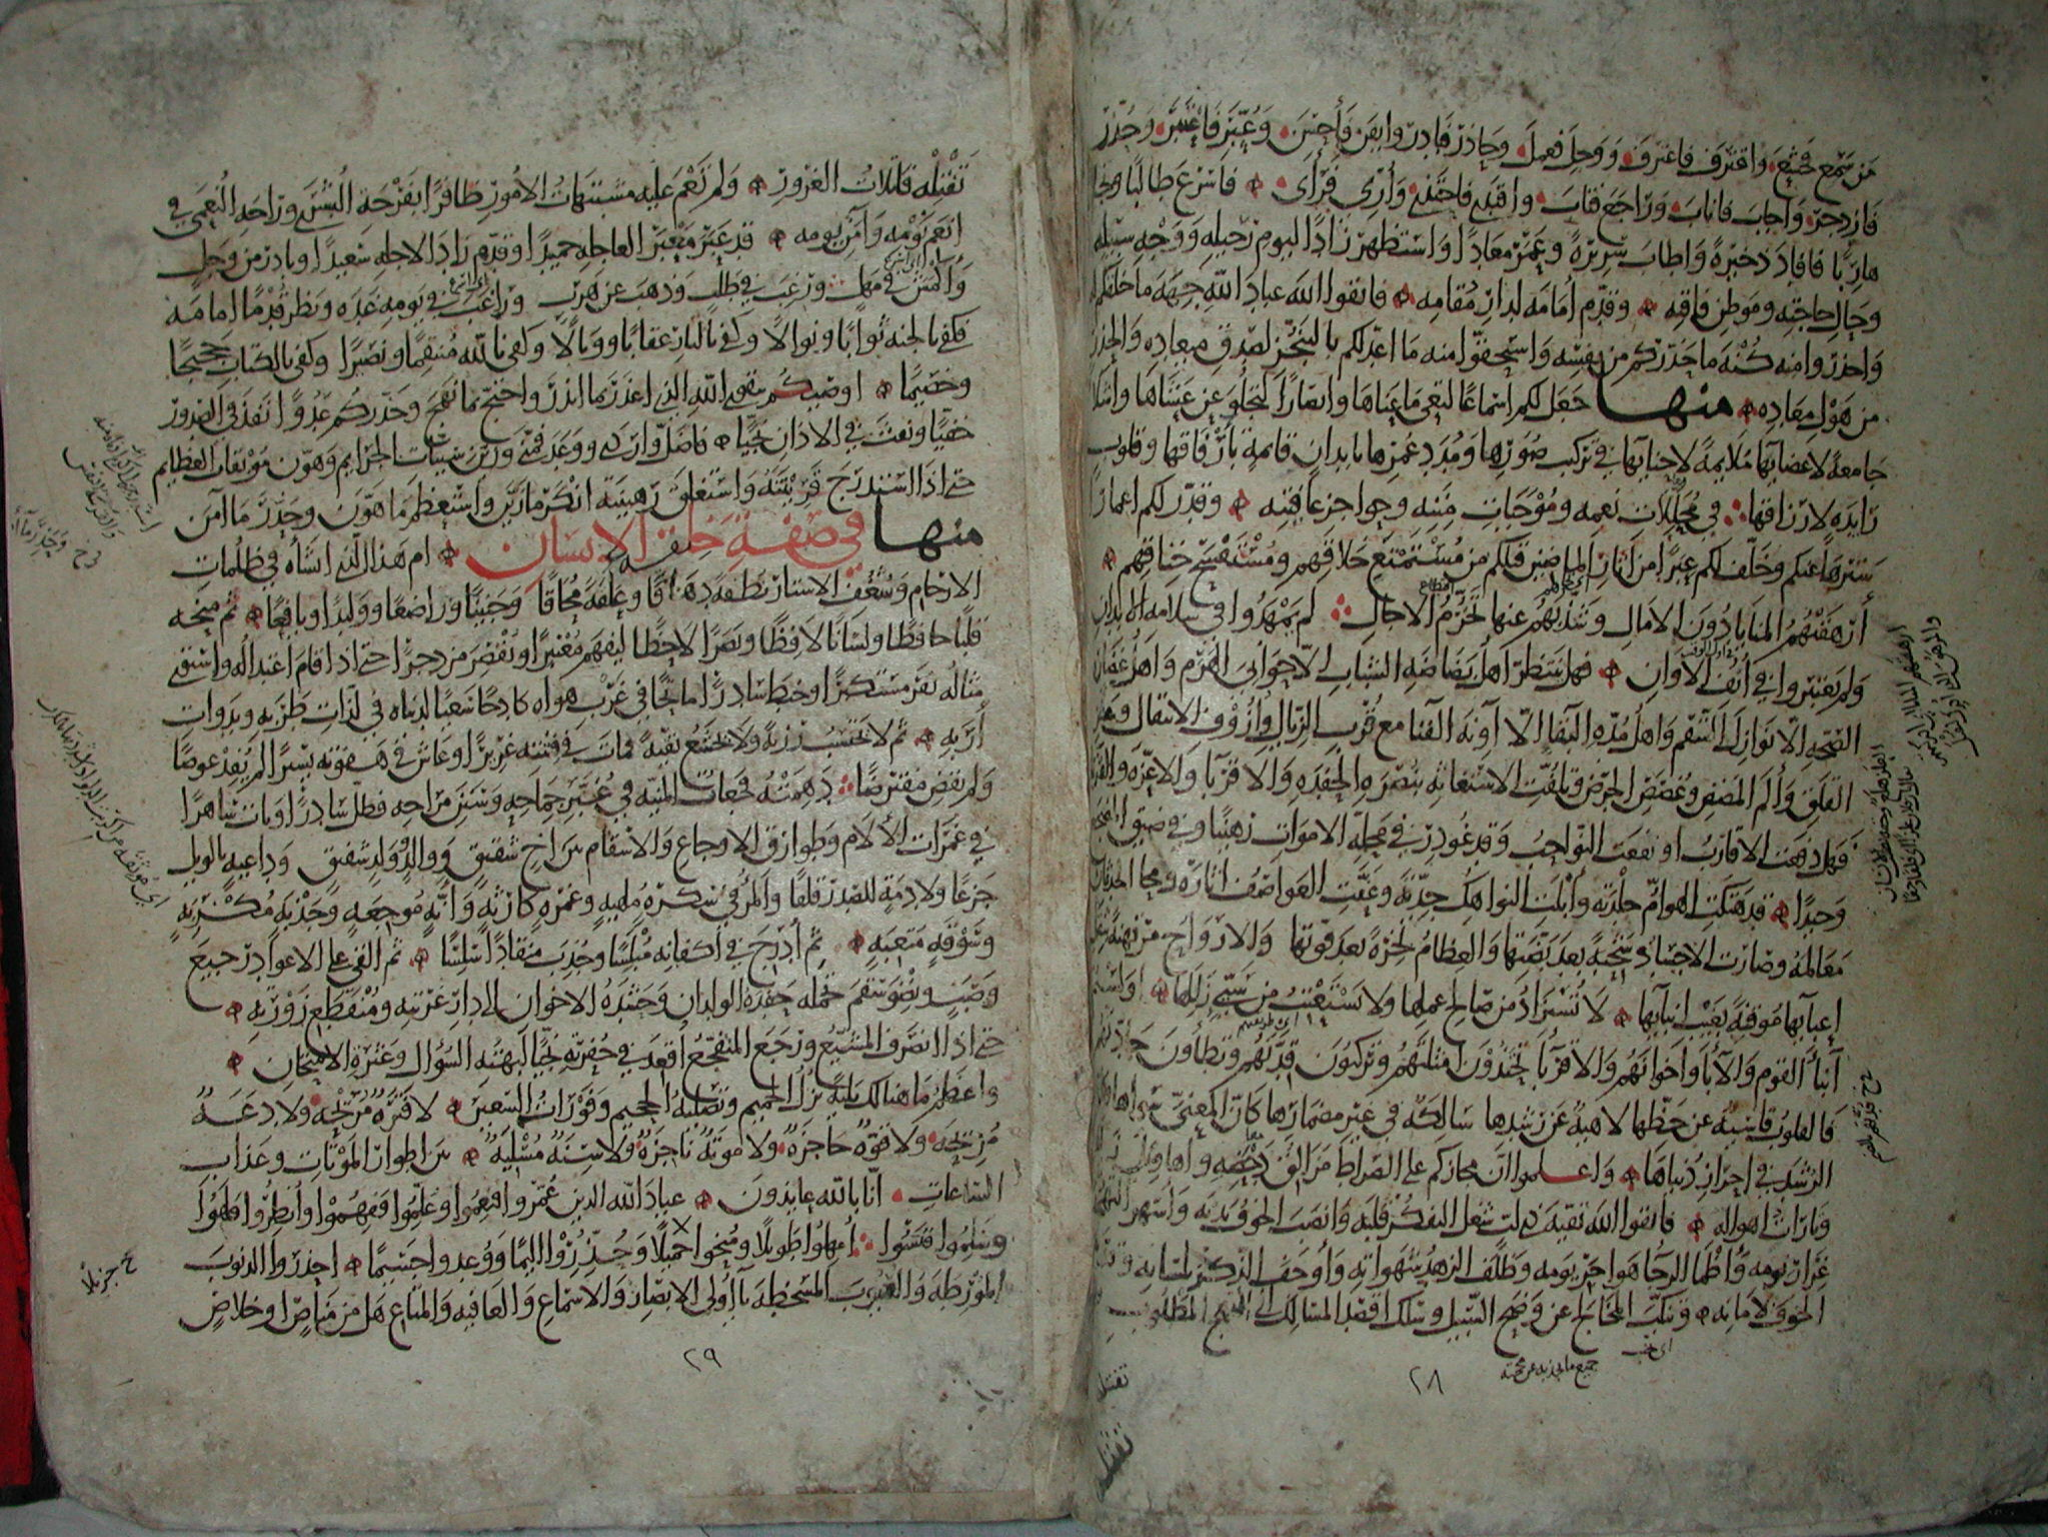 من سمع فخشع واقترف فاعترف ووجل فعمل وحاذر فبادر وايقن فأحسن وعُبِّر فاعتبر وحُذِّر
فازدجر واجاب فاناب وراجع فتاب واقتدى فاحتذى وأُرِي فرأى فاسرع طالبا ونجا
هاربا فافاد ذخيرة واطاب سريرة وعمّر معادا واستظهر زادا ليوم رحيله ووجه سبيله
وحال حاجته وموطن فاقته وقدّم أمامه لدار مُقامه فاتقوا الله عباد الله جهة ما خلقكم
واحذروا منه كُنْه ما حذّركم من نفسه واستحقوا منه ما اعدّ لكم بالتنجّز لصدق ميعاده والحذر
من هول معاده منها جعل لكم اسماعًا لتعي ما عناها وابصارًا لتجلو عن عشاها واشلا
جامعة لاعضائها ملايمة لاحنائها في تركيب صُوَرها ومُدد عمرها بابدان قائمة بأرفاقها وقلوب
رايدة لارزاقها في مجلّلات نعمه ومُوجبات مِننه وحواجز عافيته وقدّر لكم اعمارا
سترها عنكم وخلّف لكم عِبَرا من آثار الماضين قبلكم من مُستمتع خلاقهم ومُستفسح خناقهم
أرهقتهم المنايا دون الآمال وشذّبهم عنها تخرّم الآجال لم يمهدوا في سلامة الابدان
ولم يعتبروا في أُنُف الاوان فهل ينتظر اهل بضاضة الشباب الّا حواني الهرم واهل غضارة
الصحّة الا نوازل السقم واهل مُدّة البقا الّا آونة الفنا مع قُرب الزيال وأزوف الانتقال وعلز
القلق وألم المضض وغُصص الجَرَض وتلفّت الاستغاثة بنُصرة الحفدة والاقربا والاعزّة والقرنا
فهل دفعت الاقارب او نفعت النواحب وقد غودر في محلّة الاموات رهينًا وفي ضيق المضجع
وحيدًا قد هتكت الهوامّ جلدته وأبلت النواهك جدّته وعفت العواصف آثاره ومحا الحدثان
معالمه وصارت الاجساد شحبة بعد بضّتها والعظام نخرة بعد قوتها والارواح مرتهنة بثقل
اعبائها موقنة بغيب انبائها لا تُستزاد من صالح عملها ولا تُستعتب من سيّئ زللها اولستم
أبنا القوم والآبا واخوانهم والاقربا تحتذون امثلتهم وتركبون قِدّتهم وتطأون جادّتهم
فالقلوب قاسية عن حظّها لاهية عن رشدها سالكة في غير مضمارها كأنّ المعنيّ سواها وكأن
الرشد في احراز دنياها واعلموا أنّ مجازكم على الصراط ومزالق دحضه واهاويل زلله
وتارات اهواله فاتقوا الله تقيّة ذي لبّ شغل التفكر قلبه وانصب الخوف بدنه واسهر التهجد
غرار نومه وأظمأ الرجا هواجر يومه وظلف الزهد شهواته وأوجف الذكر بلسانه وقدّم
الخوف لامانه وتنكّب المخالج عن وضح السبيل وسلك اقصد المسالك الى النهج المطلوب
٢٨
تفتله فاتلات الغرور ولم تعم عليه مشتبهات الامور ظافرًا بفرحة البُشرى وراحة النُعمى في
انعم نومه وآمن يومه قد عبر معبر العاجلة حميدًا وقدّم زاد الآجلة سعيدًا وبادر من وجل
وأكمش في مهل ورغب في طلب وذهب عن هرب وراقب في يومه غده ونظر قُدُمًا امامه
فكفى بالجنة ثوابًا ونوالًا وكفى بالنار عقابًا ووبالًا وكفى بالله منتقمًا ونصيرًا وكفى بالكتاب حجيجًا
وخصيمًا اوصيكم بتقوى الله الذي اعذر بما انذر واحتجّ بما نهج وحذّركم عدوًّا نفذ في الصدور
خفيًّا ونفث في الاذان نجيًّا فاضلّ واردى ووعد فمنّى وزيّن سيئات الجرايم وهوّن موبقات العظايم
حتى اذا استدرج قرينته واستغلق رهينته انكر ما زيّن واستعظم ما هوّن وحذّر ما آمن
منها في صفة خلق الانسان ام هذا الذي انشأه في ظلمات
الارحام وشُغُف الاستار نطفة دهاقًا وعلقة مُحاقًا وجنينًا وراضعًا ووليدًا ويافعًا ثم منحه
قلبًا حافظًا ولسانًا لافظًا وبصرًا لاحظًا ليفهم معتبرًا ويُقصر مزدجرًا حتى اذا قام اعتداله واستوى
مثاله نفر مستكبرًا وخبط سادرًا ماتحًا في غرب هواه كادحًا سعيًا لدنياه في لذات طربه وبدوات
أربه ثم لا يحتسب رزيّة ولا يخشع تقيّة فمات في فتنته غريرًا وعاش في هفوته يسيرًا لم يُفد عوضًا
ولم يقض مفترضًا دهمته فجعات المنيّة في غُبّر جماحه وسَنن مراحه فظلّ سادرًا وبات ساهرًا
في غمرات الآلام وطوارق الاوجاع والاسقام بين اخ شقيق ووالد شفيق وداعية بالويل
جزعًا ولادمة للصدر قلقًا والمرء في سكرة ملهية وغمرة كارثة وأنّة موجعة وجذبة مُكربة
وسَوقة متعبة ثم أدرج في اكفانه مُبلسًا وجُذب منقادًا سلسًا ثم القي على الاعواد رجيع
وصب ونِضو سقم تحمله حفدة الولدان وحشدة الاخوان الى دار غربته ومُنقطع زورته
حتى اذا انصرف المشيّع ورجع المتفجّع أُقعد في حفرته نجيًّا لبهتة السؤال وعثرة الامتحان
واعظم ما هنالك بليّة نزل الحميم وتصلية الجحيم وفورات السعير لا فترة مُريحة ولا دعة
مُزيحة ولا قوّة حاجزة ولا موتة ناجزة ولا سنة مُسْلية بين اطوار الموتات وعذاب
الساعات انّا بالله عايذون عباد الله الذين عُمّروا فنعموا وعُلّموا ففهموا وأُنظروا فلهوا
وسُلّموا فنسوا أُمهلوا طويلًا ومُنحوا جميلًا وحُذّروا اليمًا ووُعدوا جسيمًا احذروا الذنوب
المُورّطة والعيوب المسخطة يا أُولى الابصار والاسماع والعافية والمتاع هل من مناص او خلاص
٢٩